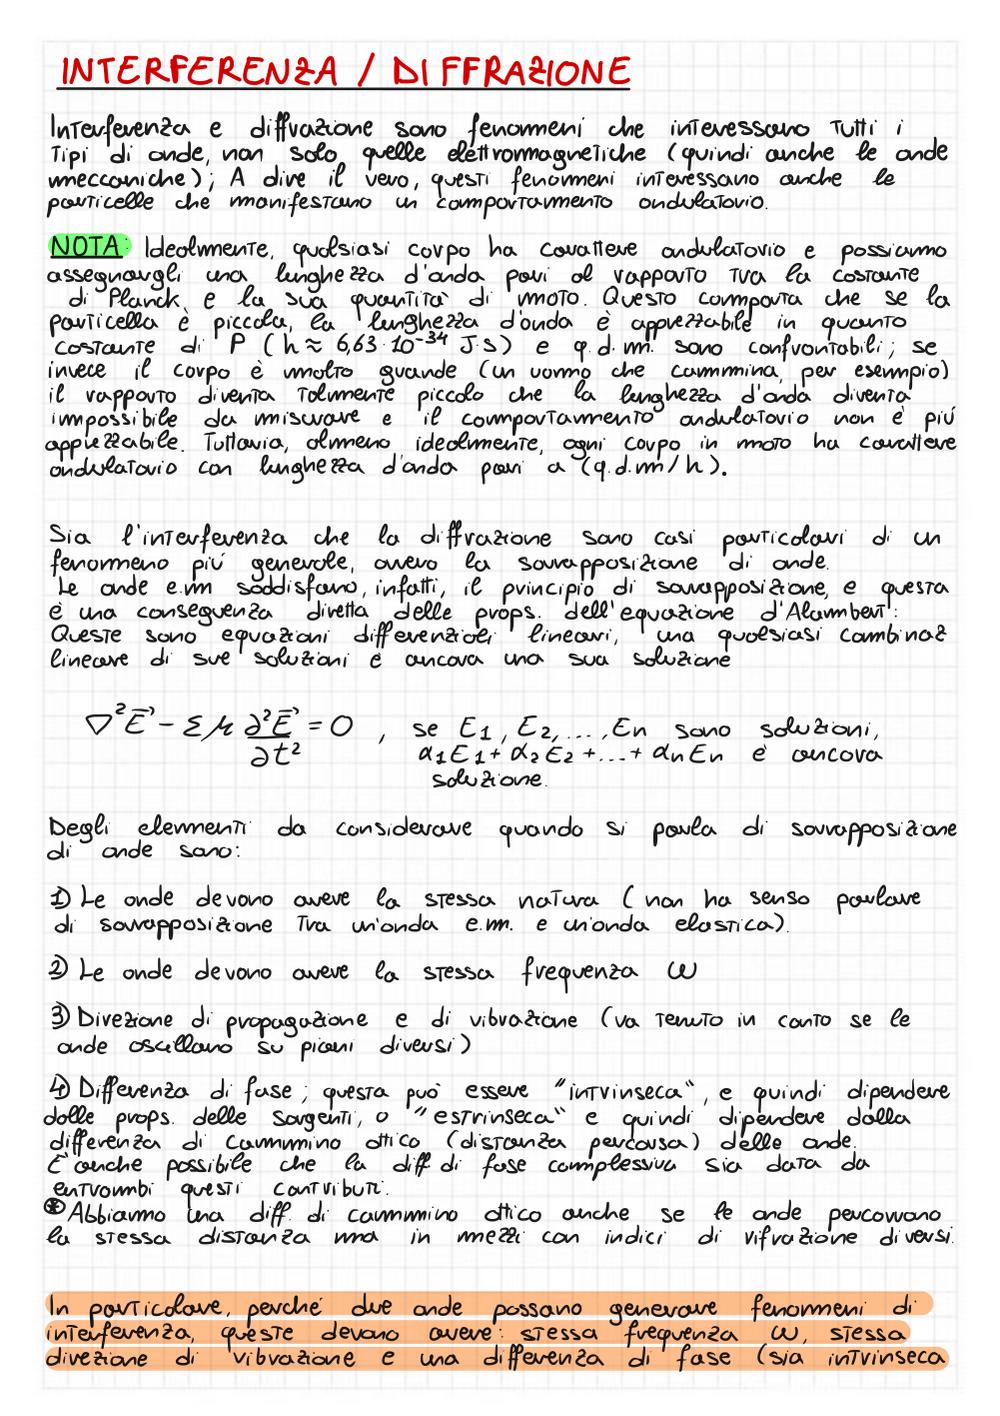 INTERFERENZA / DIFFRAZIONE
Interferenza e diffrazione sono fenommeni che interessano tutti i
tipi di onde, non solo quelle elettromagnetiche (quindi anche le onde
mmeccaniche); A dire il vero, questi fenommeni interessano anche le
particelle che manifestano un comportamento ondulatorio.
NOTA: Idealmente, qualsiasi corpo ha carattere ondulatorio e possiamo
assegnargli una lunghezza d'onda pari al rapporto tra la costante
di Planck e la sua quantità di moto. Questo comporta che se la
particella è piccola, la lunghezza d'onda è apprezzabile in quanto
costante di P (h ≈ 6,63·10⁻³⁴ J·s) e q.d.m. sono confrontabili; se
invece il corpo è molto grande (un uomo che cammina, per esempio)
il rapporto diventa talmente piccolo che la lunghezza d'onda diventa
impossibile da misurare e il comportamento ondulatorio non è più
apprezzabile. Tuttavia, almeno idealmente, ogni corpo in moto ha carattere
ondulatorio con lunghezza d'onda pari a (q.d.m/h).
Sia l'interferenza che la diffrazione sono casi particolari di un
fenommeno piú generale, ovvero la sovrapposizione di onde.
Le onde e.m soddisfano, infatti, il principio di sovrapposizione, e questa
è una conseguenza diretta delle props. dell'equazione d'Alambert:
Queste sono equazioni differenziali lineari, una qualsiasi combinaz
lineare di sue soluzioni è ancora una sua soluzione
∇²E⃗ - εμ ∂²E⃗/∂t² = 0 , se E1, E2, ..., En sono soluzioni,
α1E1 + α2E2 + ... + αnEn è ancora
soluzione.
Degli elementi da considerare quando si parla di sovrapposizione
di onde sono:
1) Le onde devono avere la stessa natura (non ha senso parlare
di sovrapposizione tra un'onda e.m. e un'onda elastica).
2) Le onde devono avere la stessa frequenza ω
3) Direzione di propagazione e di vibrazione (va tenuto in conto se le
onde oscillano su piani diversi)
4) Differenza di fase; questa può essere "intrinseca", e quindi dipendere
dalle props. delle sorgenti, o "estrinseca" e quindi dipendere dalla
differenza di cammino ottico (distanza percorsa) delle onde.
È anche possibile che la diff di fase complessiva sia data da
entrambi questi contributi.
⊛ Abbiamo una diff. di cammino ottico anche se le onde percorrono
la stessa distanza ma in mezzi con indici di rifrazione diversi.
In particolare, perché due onde possano generare fenommeni di
interferenza, queste devono avere: stessa frequenza ω, stessa
direzione di vibrazione e una differenza di fase (sia intrinseca